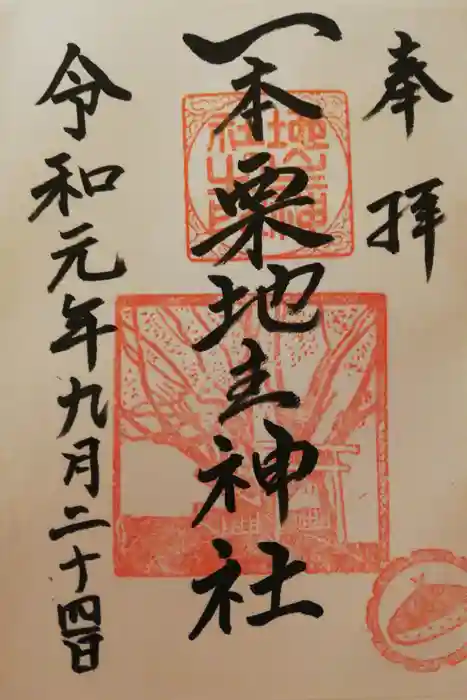 奉拝
一本栗地主神社
令和元年九月二十四日